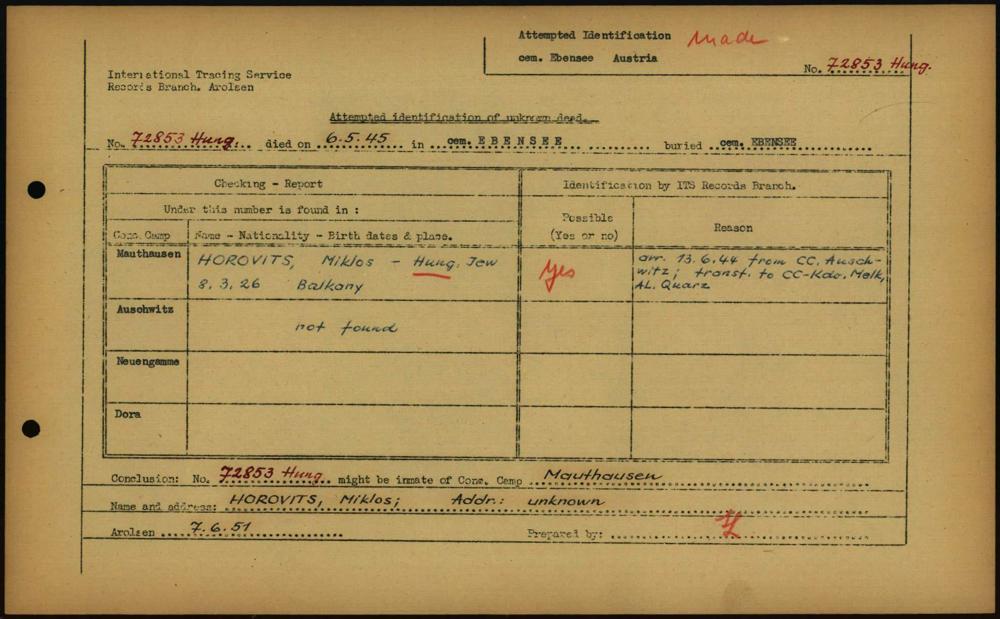 Attempted Identification made
cem. Ebensee Austria
No. 72853 Hung.
International Tracing Service
Records Branch. Arolsen
Attempted identification of unknown dead.
No. 72853 Hung. died on 6.5.45 in cem. EBENSEE buried cem. EBENSEE
Checking - Report
Identification by ITS Records Branch.
Under this number is found in :
Possible
(Yes or no)
Reason
Conc. Camp
Name - Nationality - Birth dates & place.
Mauthausen
HOROVITS, Miklos - Hung. Jew
8.3.26 Balkany
yes
arr. 13.6.44 from CC. Ausch-
witz; transf. to CC-Kdo. Melk,
AL. Quarz
Auschwitz
not found
Neuengamme
Dora
Conclusion: No. 72853 Hung. might be inmate of Conc. Camp Mauthausen
Name and address: HOROVITS, Miklos; Addr.: unknown
Arolsen 7.6.51
Prepared by: